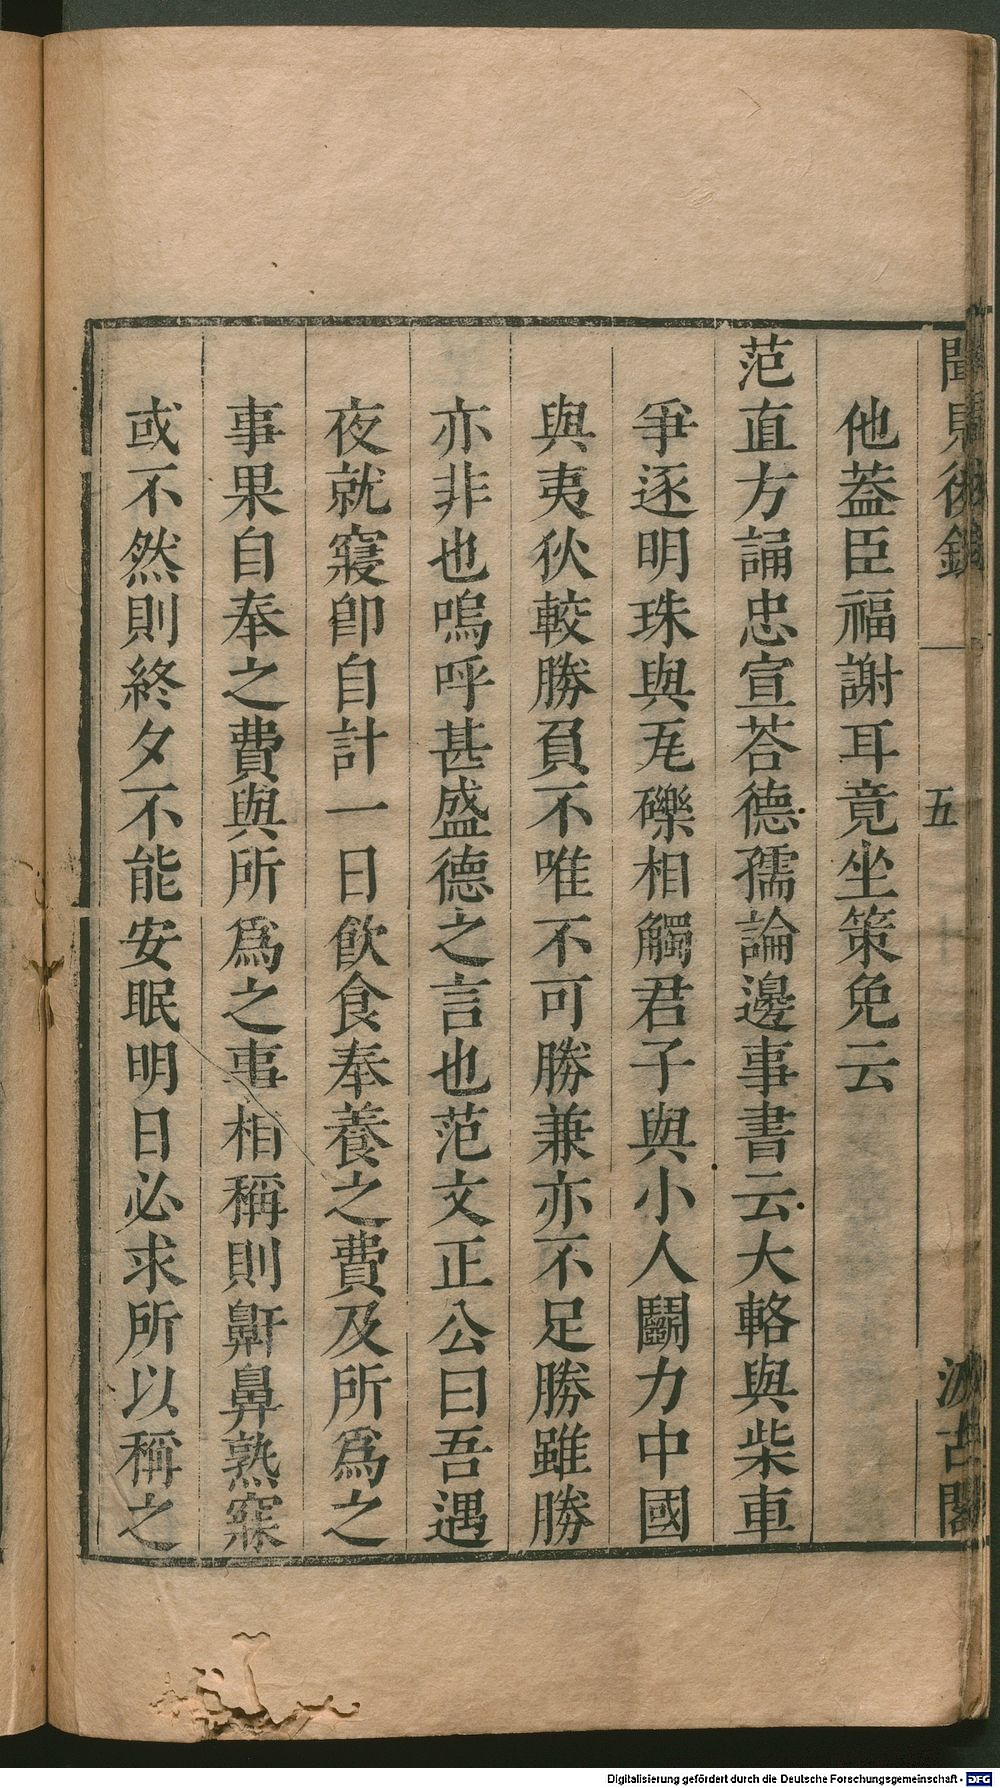 聞見後錄 一 五 汲古閣
他葢臣福謝耳竟坐策免云
范直方誦忠宣荅德孺論邊事書云大輅與柴車
爭逐明珠與瓦礫相觸君子與小人鬭力中國
與夷狄較勝負不唯不可勝兼亦不足勝雖勝
亦非也嗚呼甚盛德之言也范文正公曰吾遇
夜就寢卽自計一日飲食奉養之費及所爲之
事果自奉之費與所爲之事相稱則鼾鼻熟寐
或不然則終夕不能安眠明日必求所以稱之
Digitalisierung gefördert durch die Deutsche Forschungsgemeinschaft - DFG